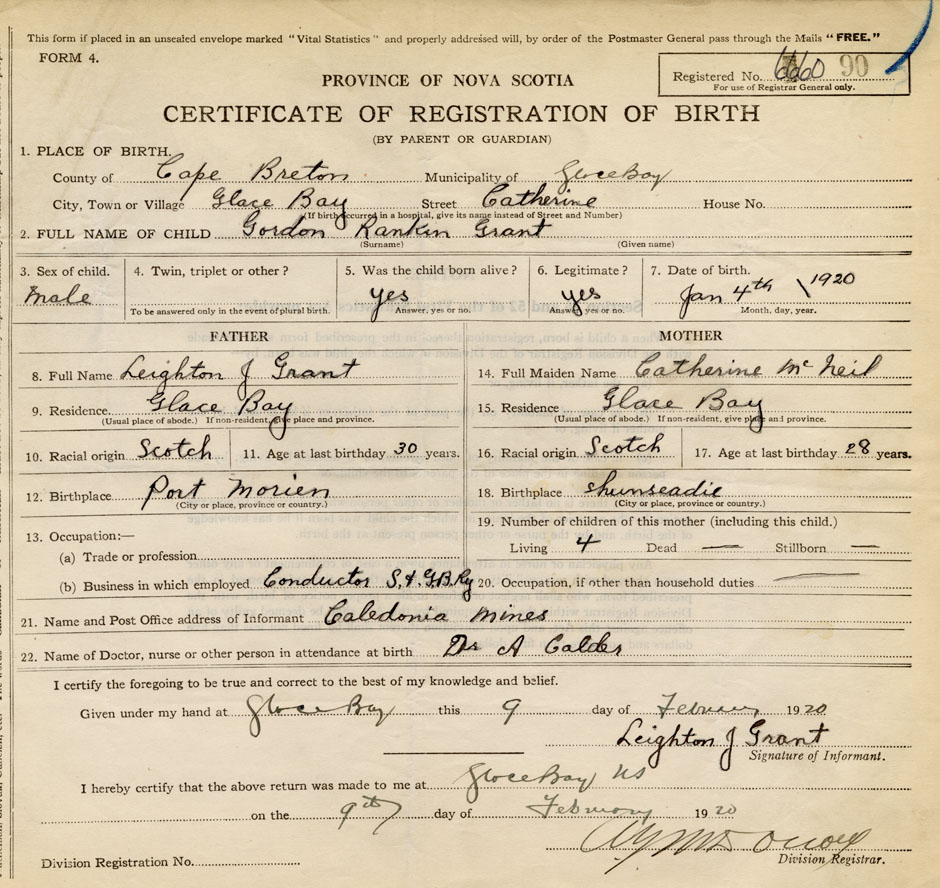 This form if placed in an unsealed envelope marked "Vital Statistics" and properly addressed will, by order of the Postmaster General pass through the Mails "FREE."
FORM 4.
Registered No. 90
For use of Registrar General only.
PROVINCE OF NOVA SCOTIA
CERTIFICATE OF REGISTRATION OF BIRTH
(BY PARENT OR GUARDIAN)
1. PLACE OF BIRTH.
County of Cape Breton Municipality of Glace Bay
City, Town or Village Glace Bay Street Catherine House No.
(If birth occurred in a hospital, give its name instead of Street and Number)
2. FULL NAME OF CHILD Gordon Rankin Grant
(Surname) (Given name)
3. Sex of child. 4. Twin, triplet or other? 5. Was the child born alive? 6. Legitimate? 7. Date of birth.
Male yes yes Jan 4th 1920
To be answered only in the event of plural birth. Answer, yes or no. Answer, yes or no. Month, day, year.
FATHER MOTHER
8. Full Name Leighton J Grant 14. Full Maiden Name Catherine McNeil
9. Residence. Glace Bay 15. Residence Glace Bay
(Usual place of abode.) If non-resident, give place and province. (Usual place of abode.) If non-resident, give place and province.
10. Racial origin Scotch 11. Age at last birthday 30 years. 16. Racial origin Scotch 17. Age at last birthday 28 years.
12. Birthplace Port Morien 18. Birthplace shunseadie
(City or place, province or country.) (City or place, province or country.)
13. Occupation:— 19. Number of children of this mother (including this child.)
(a) Trade or profession Living 4 Dead — Stillborn —
(b) Business in which employed Conductor S. & G.B. Ry 20. Occupation, if other than household duties —
21. Name and Post Office address of Informant Caledonia Mines
22. Name of Doctor, nurse or other person in attendance at birth Dr A Calder
I certify the foregoing to be true and correct to the best of my knowledge and belief.
Given under my hand at Glace Bay this 9 day of February 1920
Leighton J Grant
Signature of Informant.
I hereby certify that the above return was made to me at Glace Bay NS
on the 9th day of February 1920
Division Registration No. Division Registrar.